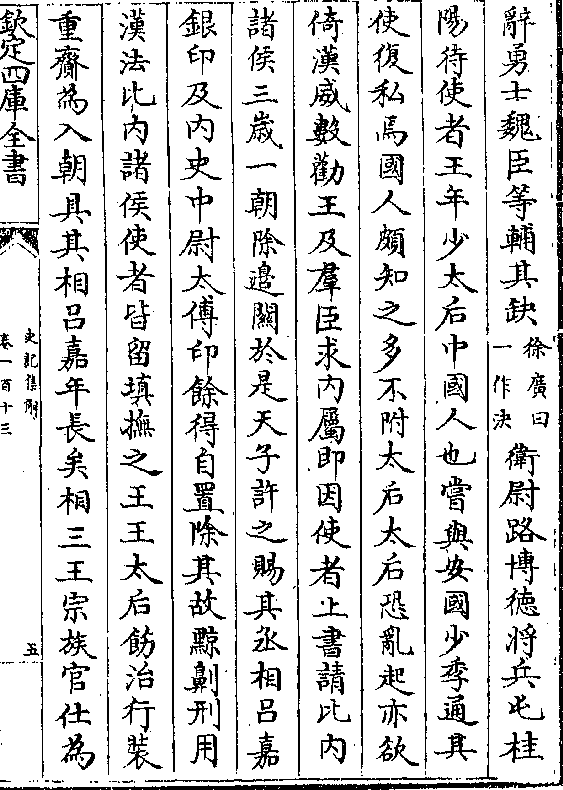 辭勇士魏臣等輔其缺徐廣曰一作決衛尉路博德將兵屯桂
陽待使者王年少太后中國人也嘗與安國少季通其
使復私焉國人頗知之多不附太后太后恐亂起亦欲
倚漢威數勸王及羣臣求內屬即因使者上書請比內
諸侯三歲一朝除邊關於是天子許之賜其丞相呂嘉
銀印及內史中尉太傅印餘得自置除其故黥劓刑用
漢法比內諸侯使者皆留填撫之王王太后飭治行裝
重齎為入朝具其相呂嘉年長矣相三王宗族官仕為
欽定四庫全書
史記集解
卷一百十三
五